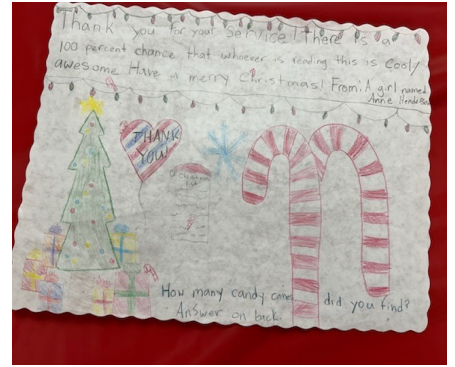 Thank you for your service! There is a
100 percent chance that whoever is reading this is cool/
awesome Have a merry Christmas! From: A girl named
Anne
THANK
YOU!
Christmas
List
How many candy canes did you find?
Answer on back.